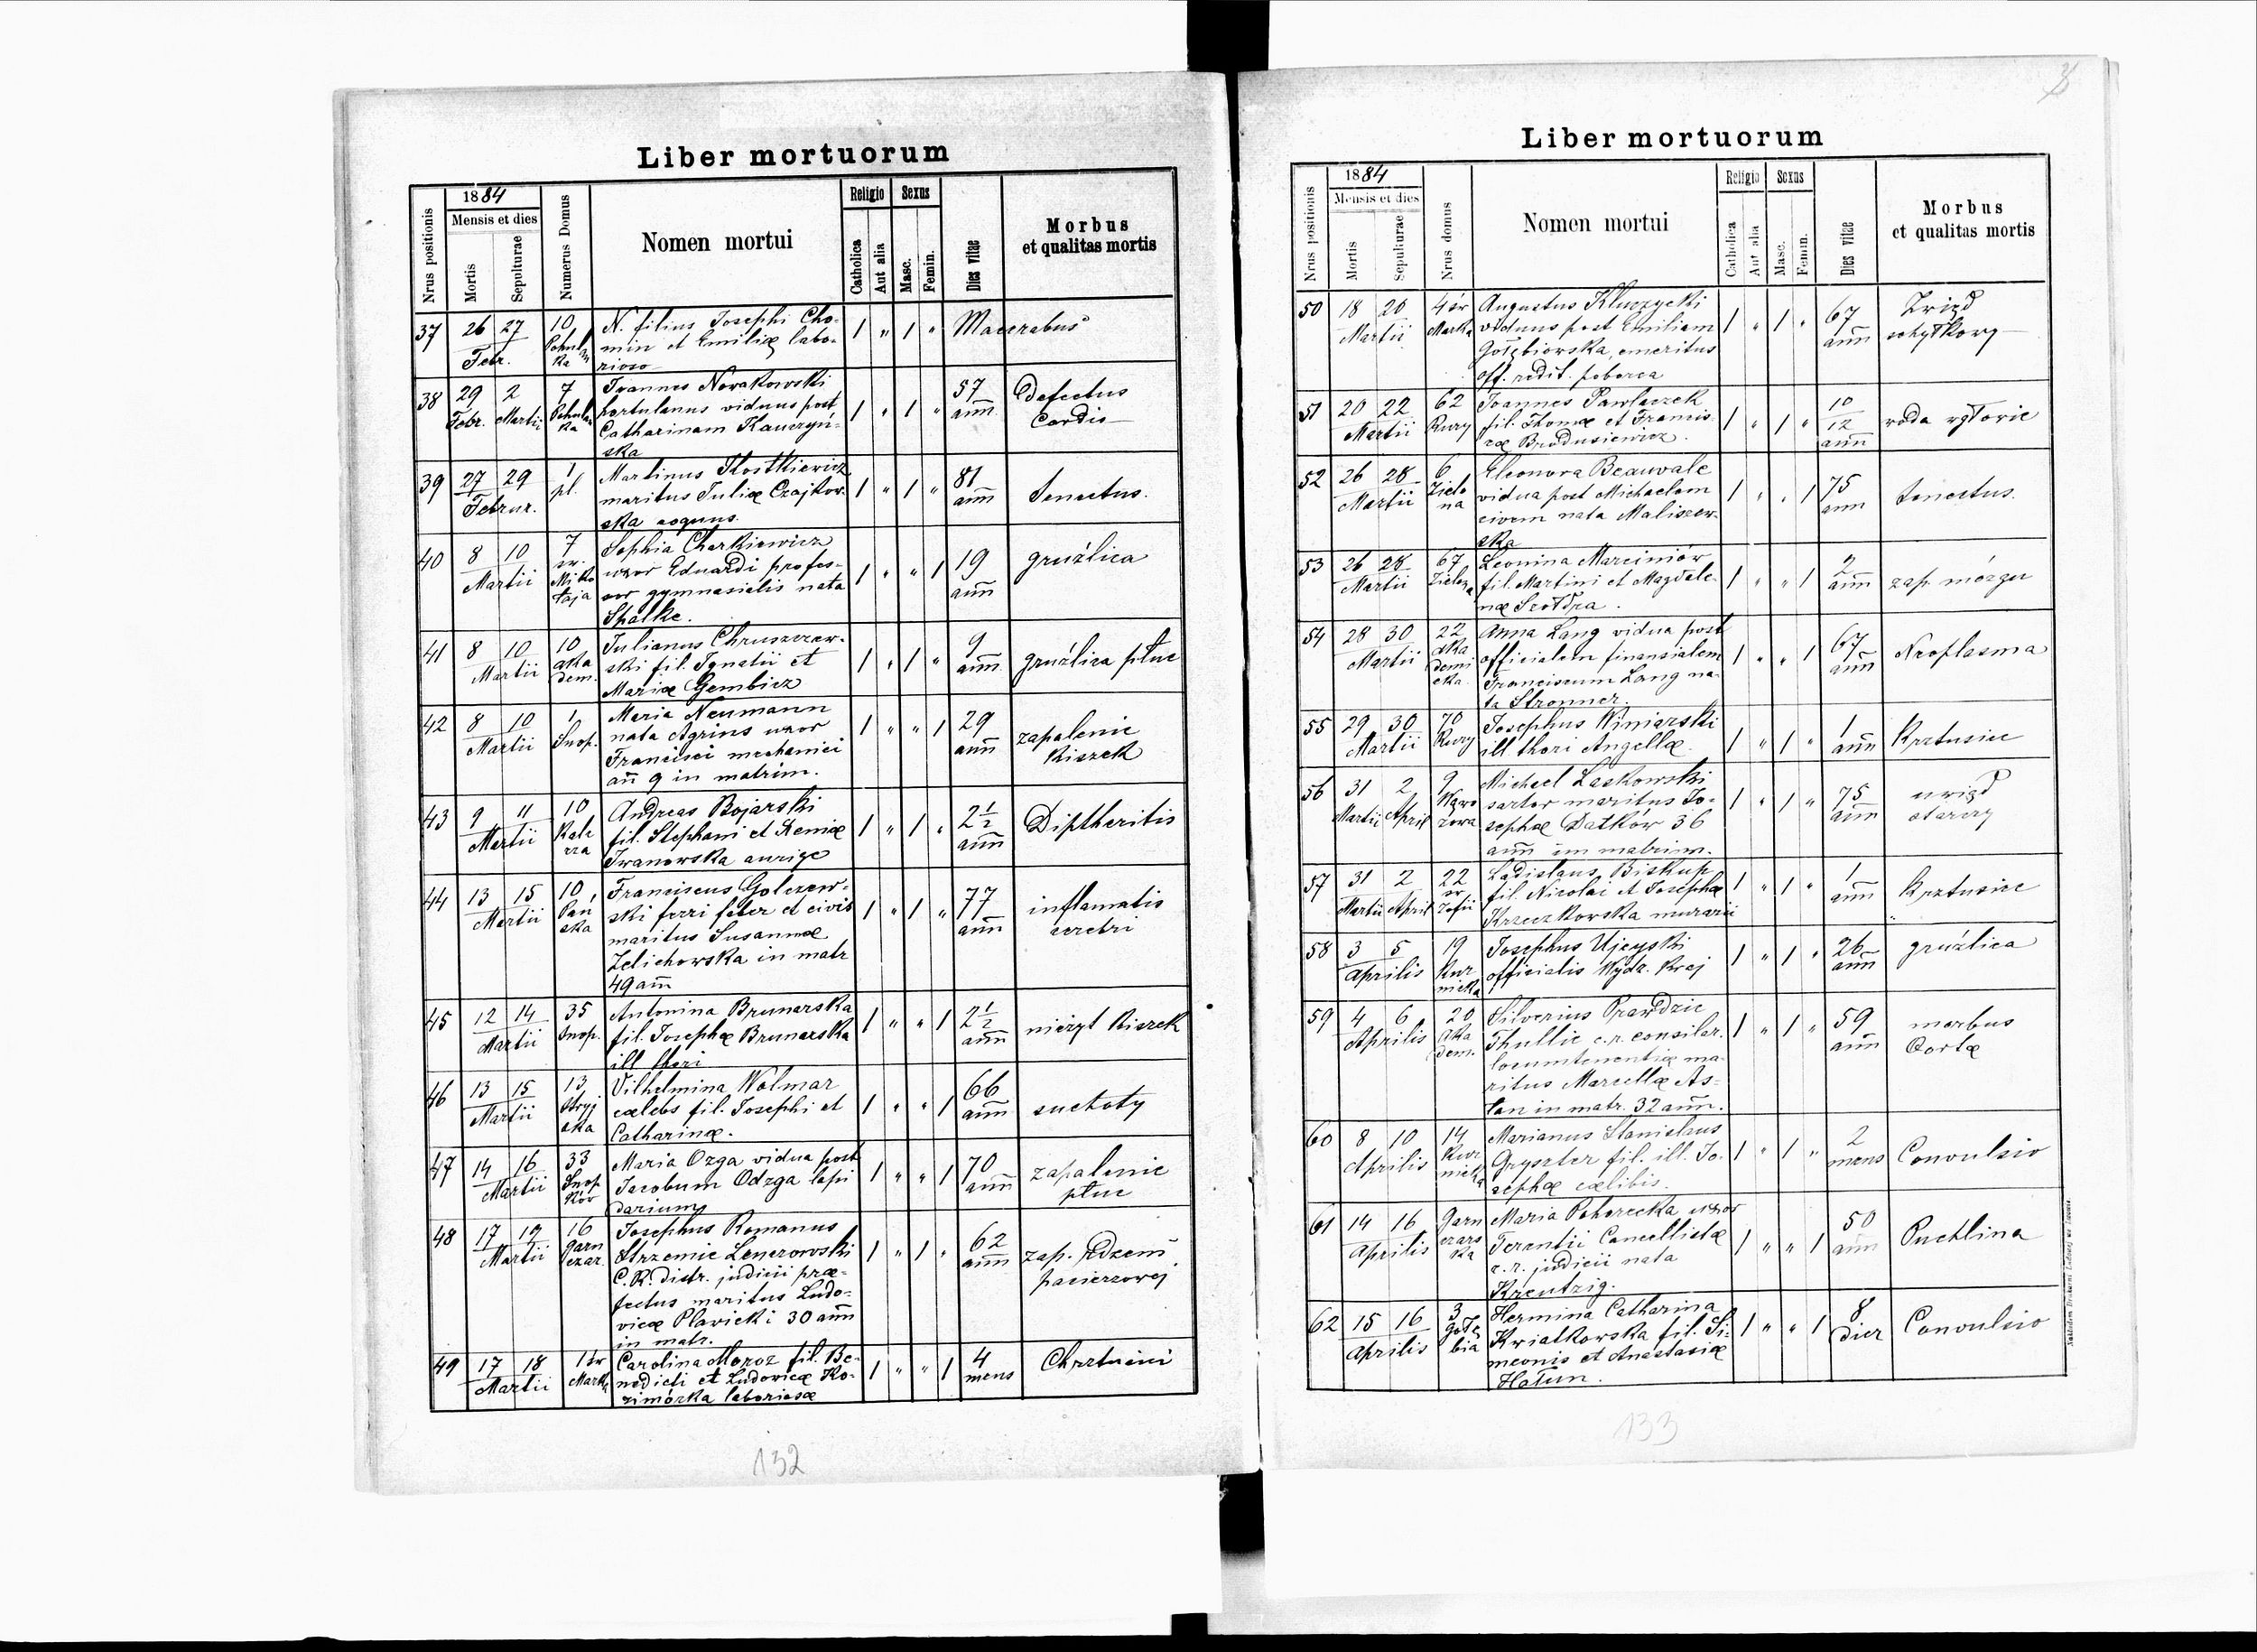 Liber mortuorum
Nrus positionis
1884
Mensis et dies
Mortis
Sepulturae
Numerus Domus
Nomen mortui
Religio
Catholica
Aut alia
Sexus
Masc.
Femin.
Dies vitae
Morbus
et qualitas mortis
37 26 27 10 N. filius Josephi Cho- 1 " 1 " Macerabus
Febr. min et Emiliæ labo-
ka rioso
38 29 2 7 Joannes Nowakowski 1 " 1 " 57 Defectus
Febr. Martii hortulanus viduus post ann Cordis
ka Catharinam Kauczyń-
ska
39 27 29 1 Martinus Kostkiewicz 1 " 1 " 81 Senectus.
Februr. pl. maritus Juliæ Czajkow- ann
ska coquus.
40 8 10 7 Sophia Charkiewicz 1 " " 1 19 gruźlica
Martii sw. uxor Eduardi profes- ann
Miko sor gymnasialis nata
łaja Spalke.
41 8 10 10 Julianus Chruszczew- 1 " 1 " 9 gruźlica płuc
Martii aka ski fil. Ignatii et ann
dem. Mariæ Gembicz
42 8 10 1 Maria Neumann 1 " " 1 29 zapalenie
Martii Snop. nata Agrins uxor ann kiszek
Francisci mechanici
ann 9 in matrim.
43 9 11 10 Andreas Bojarski 1 " 1 " 2 1/2 Diptheritis
Martii Kale fil. Stephani et Xeniæ ann
cza Iwanowska aurige
44 13 15 10 Franciscus Golczew- 1 " 1 " 77 inflamatis
Martii Pań ski ferri faber et civis ann cerebri
ska maritus Susannæ
Zelichowska in matr
49 ann
45 12 14 35 Antonina Brunarska 1 " " 1 2 1/2 nieżyt kiszek
Martii Snop. fil. Josephæ Brunarska ann
ill thori
46 13 15 13 Vilhelmina Wolmar 1 " " 1 66 suchoty
Martii Stryj cælebs fil. Josephi et ann
ska Catharinæ.
47 14 16 33 Maria Ozga vidua post 1 " " 1 70 zapalenie
Martii Snop Jacobum Odzga lapi ann płuc
ków darium
48 17 19 16 Josephus Romanus 1 " 1 " 62 zap. rdzeni
Martii garn Strzemie Lenczowski ann pacierzowej
czar. C. R. distr. judicii præ-
fectus maritus Ludo-
vicæ Plavicki 30 ann
in matr.
49 17 18 1 św Carolina Moroz fil. Be- 1 " " 1 4 Chrztuini
Martii Marka nedicti et Ludovicæ Ko- mens
zimórka laboriosæ
132
Liber mortuorum
Nrus positionis
1884
Mensis et dies
Mortis
Sepulturae
Nrus domus
Nomen mortui
Religio
Catholica
Aut alia
Sexus
Masc.
Femin.
Dies vitae
Morbus
et qualitas mortis
50 18 20 4 św Augustus Kluczycki 1 " 1 " 67
Martii Marka viduus post Emiliam ann schyłkowy
Gołębiorska, emeritus
off. redit. poborca
51 20 22 62 Joannes Pawlaczek 1 " 1 " 10/12
Martii Kury fil. Thomæ et Francis- ann
cæ Brodusiewicz.
52 26 28 6 Eleonora Beauvale 1 " " 1 75 Senectus.
Martii Zielo vidua post Michaelem ann
na civem nata Maliszew-
ska
53 26 28 67 Leonina Marciniów 1 " " 1 2 zap. mózgu
Martii Zielona fil. Martini et Magdale- ann
næ Szołdra.
54 28 30 22 Anna Lang vidua post 1 " " 1 67 Neoplasma
Martii aka officialem finansialem ann
demi Franciscum Lang na-
cka ta Stronner.
55 29 30 70 Josephus Winiarski 1 " 1 " 1 Krztusiec
Martii Kury ill thori Angellæ. ann
56 31 2 9 Michael Laskowski 1 " 1 " 75 uwiąd
Martii April Wąwo sartor maritus Jo- ann starczy
zowa sephæ Datków 36
ann in matrim.
57 31 2 22 Ladislaus Biskup 1 " 1 " 1 krztusiec
Martii April sw fil. Nicolai et Josephæ ann
Zofii Krzeczkowska murarii
58 3 5 19 Josephus Ujeyski 1 " 1 " 26 gruźlica
Aprilis Kur officialis Wydz. Kraj ann
nicka
59 4 6 20 Silverius Prawdzic 1 " 1 " 59 morbus
Aprilis Aka Thullie c.r. consilar. ann Aortæ
dem. locumtenentiæ ma-
ritus Marcellæ As-
lan in matr. 32 ann.
60 8 10 14 Marianus Stanislaus 1 " 1 " 2 Convulsio
Aprilis Kur Gryszter fil. ill. Jo- mens
nicka sephæ cælibis.
61 14 16 Garn Maria Pohorecka uxor 1 " " 1 50 Puchlina
Aprilis czars Terentii Cancellistæ ann
ka c.r. judicii nata
Kreutzig.
62 15 16 3 Hermina Catharina 1 " " 1 8 Convulsio
Aprilis Gołę Kwiatkowska fil. Si- dier
bia meonis et Anastasiæ
Hołun.
133